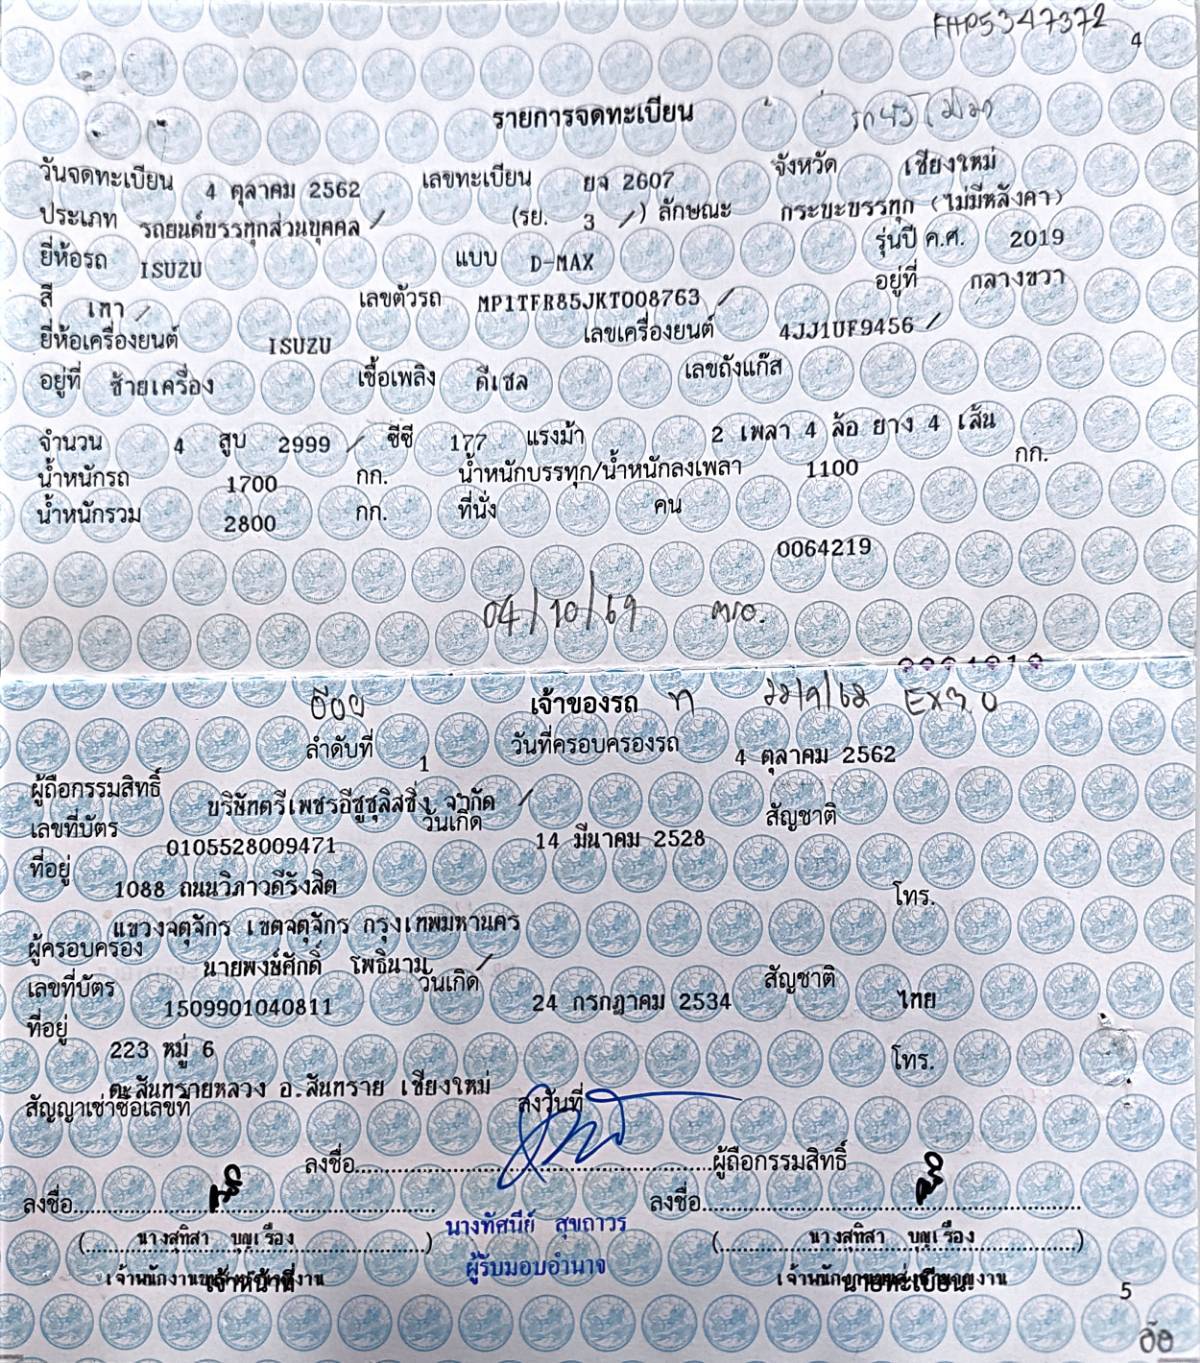 FHP5347372
4
รายการจดทะเบียน
วันจดทะเบียน 4 ตุลาคม 2562 เลขทะเบียน ยจ 2607 จังหวัด เชียงใหม่
ประเภท รถยนต์บรรทุกส่วนบุคคล / (รย. 3 /) ลักษณะ กระบะบรรทุก (ไม่มีหลังคา)
ยี่ห้อรถ ISUZU แบบ D-MAX รุ่นปี ค.ศ. 2019
สี เทา / เลขตัวรถ MP1TFR85JKT008763 / อยู่ที่ กลางขวา
ยี่ห้อเครื่องยนต์ ISUZU เลขเครื่องยนต์ 4JJ1UF9456 /
อยู่ที่ ซ้ายเครื่อง เชื้อเพลิง ดีเซล เลขถังแก๊ส
จำนวน 4 สูบ 2999 / ซีซี 177 แรงม้า 2 เพลา 4 ล้อ ยาง 4 เส้น
น้ำหนักรถ 1700 กก. น้ำหนักบรรทุก/น้ำหนักลงเพลา 1100 กก.
น้ำหนักรวม 2800 กก. ที่นั่ง คน
0064219
04/10/69
เจ้าของรถ ท 22/9/62 EX3.0
ลำดับที่ 1 วันที่ครอบครองรถ 4 ตุลาคม 2562
ผู้ถือกรรมสิทธิ์ บริษัทตรีเพชรอีซูซุลิสซิ่ง จำกัด /
เลขที่บัตร 0105528009471 วันเกิด 14 มีนาคม 2528 สัญชาติ
ที่อยู่ 1088 ถนนวิภาวดีรังสิต โทร.
แขวงจตุจักร เขตจตุจักร กรุงเทพมหานคร
ผู้ครอบครอง นายพงษ์ศักดิ์ โพธินาม /
เลขที่บัตร 1509901040811 วันเกิด 24 กรกฎาคม 2534 สัญชาติ ไทย
ที่อยู่ 223 หมู่ 6 โทร.
ต.สันทรายหลวง อ.สันทราย เชียงใหม่
สัญญาเช่าซื้อเลขที่ ลงวันที่
ลงชื่อ....................ผู้ถือกรรมสิทธิ์
ลงชื่อ.................... ลงชื่อ....................
นางทัศนีย์ สุขถาวร
(....นางสุทิสา บุญเรือง....) (....นางสุทิสา บุญเรือง....)
ผู้รับมอบอำนาจ
เจ้าหน้าที่ นายทะเบียน
5